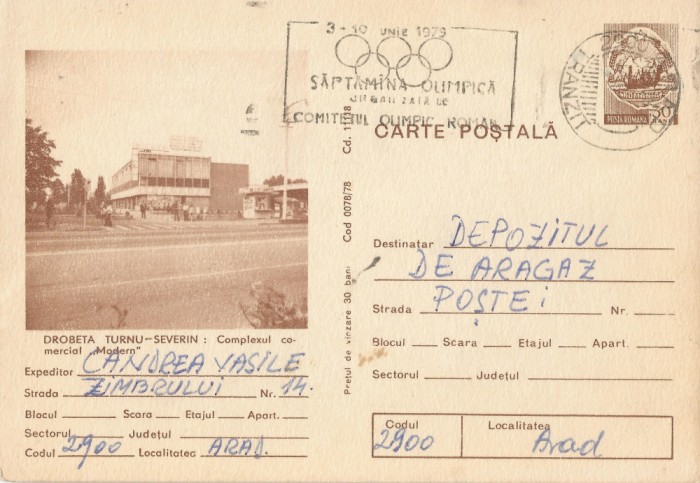 3-10 IUNIE 1979
SĂPTĂMÎNA OLIMPICĂ
ORGANIZATĂ DE
COMITETUL OLIMPIC ROMÂN
2900
TRANZIT
POȘTA ROMANA
CARTE POȘTALĂ
Cod 0078/78 Cd. 11118
Prețul de vînzare 30 bani
DROBETA TURNU-SEVERIN : Complexul co-
mercial „Modern"
Expeditor CANDREA VASILE
Strada ZIMBRULUI Nr. 14.
Blocul Scara Etajul Apart.
Sectorul Județul
Codul 2900 Localitatea ARAD.
Destinatar DEPOZITUL
DE ARAGAZ
Strada POȘTEI Nr.
Blocul Scara Etajul Apart.
Sectorul Județul
Codul Localitatea
2900 Arad